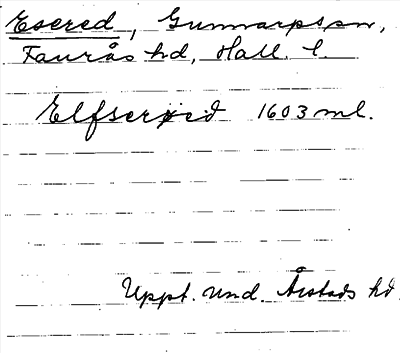 Esered, Gunnarps sn,
Faurås hd, Hall. l.
Elfseröed 1603 ml.
Uppt. und. Årstads hd.